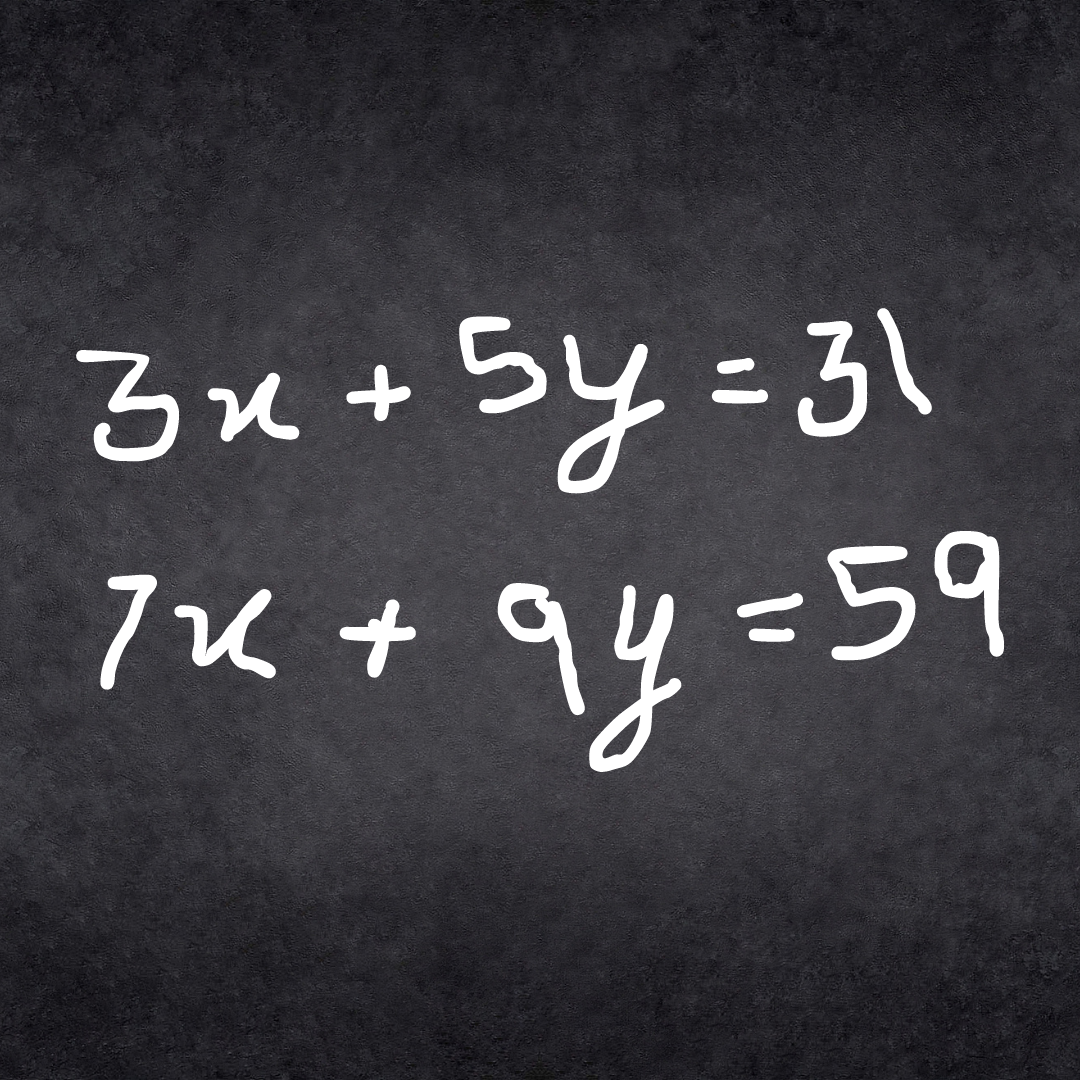 3x + 5y = 31
7x + 9y = 59